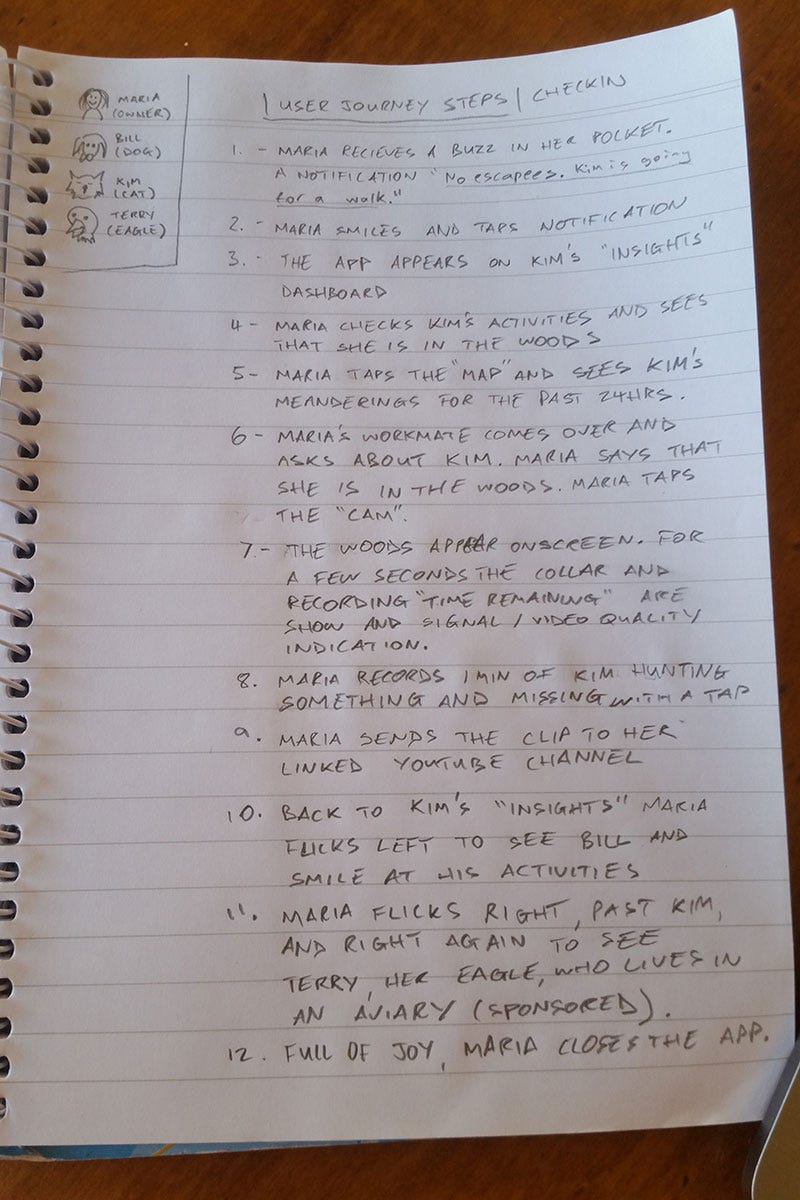 MARIA
(OWNER)
BILL
(DOG)
KIM
(CAT)
TERRY
(EAGLE)
| USER JOURNEY STEPS | CHECKIN
1. - MARIA RECIEVES A BUZZ IN HER POCKET.
A NOTIFICATION "No escapees. Kim is going
for a walk."
2. - MARIA SMILES AND TAPS NOTIFICATION
3. - THE APP APPEARS ON KIM'S "INSIGHTS"
DASHBOARD
4 - MARIA CHECKS KIM'S ACTIVITIES AND SEES
THAT SHE IS IN THE WOODS
5 - MARIA TAPS THE "MAP" AND SEES KIM'S
MEANDERINGS FOR THE PAST 24HRS.
6 - MARIA'S WORKMATE COMES OVER AND
ASKS ABOUT KIM. MARIA SAYS THAT
SHE IS IN THE WOODS. MARIA TAPS
THE "CAM".
7. - THE WOODS APPEAR ONSCREEN. FOR
A FEW SECONDS THE COLLAR AND
RECORDING "TIME REMAINING" ARE
SHOW AND SIGNAL / VIDEO QUALITY
INDICATION.
8. MARIA RECORDS 1 MIN OF KIM HUNTING
SOMETHING AND MISSING WITH A TAP
9. MARIA SENDS THE CLIP TO HER
LINKED YOUTUBE CHANNEL
10. BACK TO KIM'S "INSIGHTS" MARIA
FLICKS LEFT TO SEE BILL AND
SMILE AT HIS ACTIVITIES
11. MARIA FLICKS RIGHT, PAST KIM,
AND RIGHT AGAIN TO SEE
TERRY, HER EAGLE, WHO LIVES IN
AN AVIARY (SPONSORED).
12. FULL OF JOY, MARIA CLOSES THE APP.